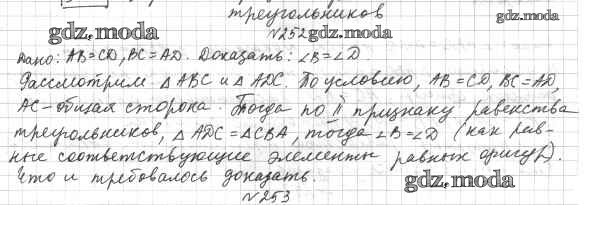 треугольников
gdz.moda
gdz.moda
№252 gdz.moda
Дано: AB=CD, BC=AD. Доказать: ∠B=∠D
Рассмотрим △ABC и △ADC. По условию, AB=CD, BC=AD,
AC-общая сторона. Тогда по II признаку равенства
треугольников, △ADC=△CBA, тогда ∠B=∠D (как рав-
ные соответствующие элементы равных фигур).
Что и требовалось доказать.
gdz.moda
№253